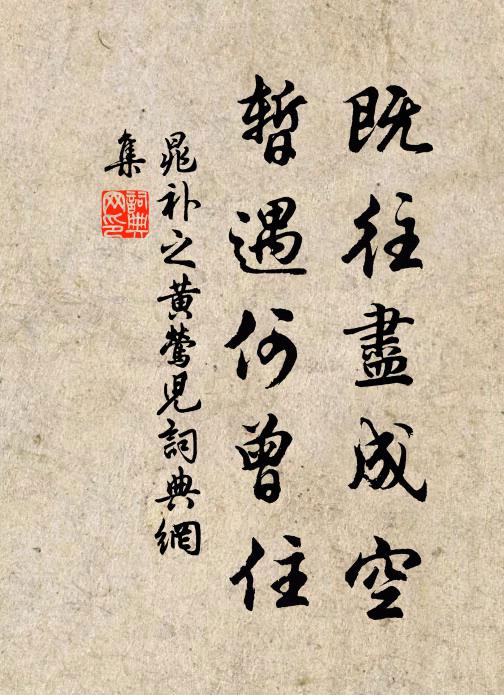 既往盡成空
暫遇何曾住
晁补之黄鶯児詞典網
集
詞典
网印